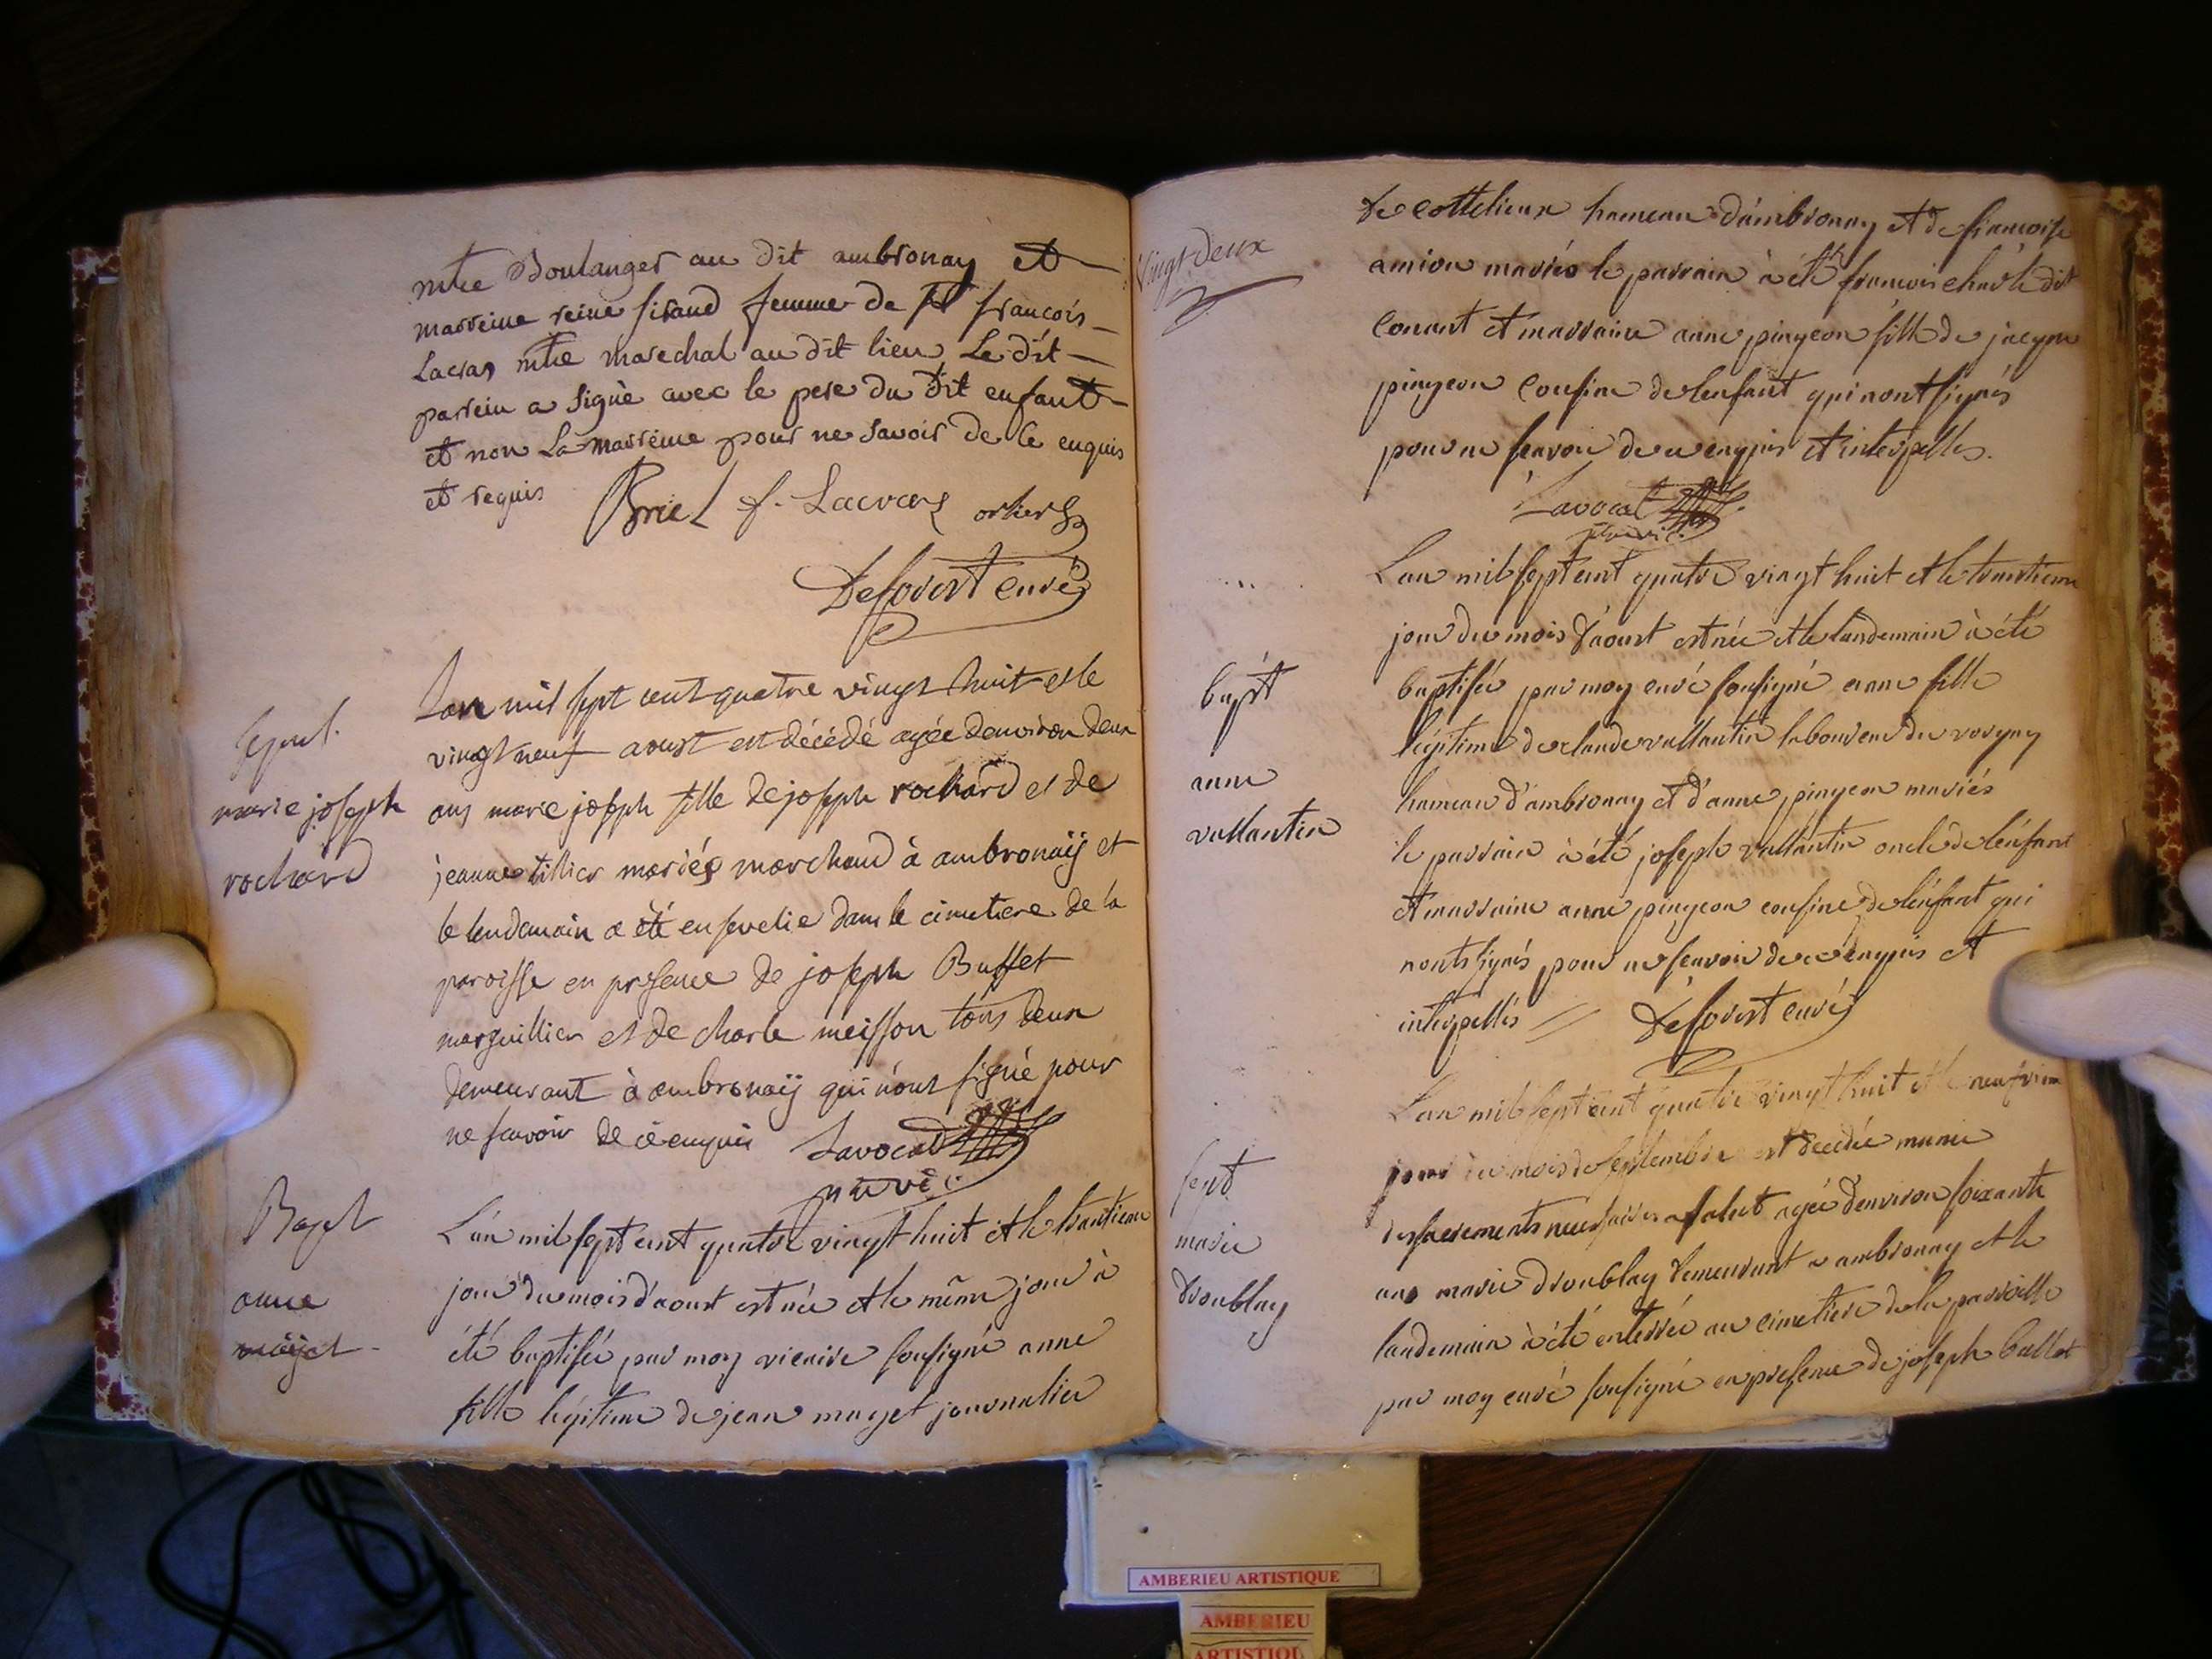 mtre Boulanger au dit ambronay et
marreine reine siraud femme de sr francois
Lacras mtre marechal au dit lieu Le dit
parrein a signè avec le pere du dit enfant
et non La marreine pour ne savoir de ce enquis
et requis Briel f. Lacras orsier
Deforest curé
sepul.
marie joseph
rochard
Lan mil sept cent quatre vingt huit et le
vingt neuf aoust est décédé agée denviron deux
ans marie joseph fille de joseph rochard et de
jeanne tillier mariés marchand à ambronaÿ et
le lendemain a été ensevelie dans le cimetiere de la
paroisse en presence de joseph Buffet
marguillier et de charle meisson tous deux
demeurant à ambronaÿ qui n'ont signé pour
ne scavoir de ce enquis Lavocat
vic.
Bapt
anne
maÿet
L'an mil sept cent quatre vingt huit et le trantieme
jour du mois d'aoust est née et le même jour à
été baptisée par moy vicaire sousigné anne
fille légitime de jean mayet journalier
Vingt deux
de cottelieux hameau d'ambronay et de francoise
amion mariés le parrain à été francois charle dit
conant et marraine anne pingeon fille de jacque
pingeon cousine de lenfant qui nont signés
pour ne scavoir de ce enquis et interpellés.
Lavocat
vic.
bapt
anne
vallantin
Lan mil sept cent quatre vingt huit et le trantieme
jour du mois d'aoust est née et le landemain à été
baptisée par moy curé sousigné anne fille
légitime de claude vallantin laboureur du
hameau d'ambronay et d'anne pingeon mariés
le parrain à été joseph vallantin oncle de lénfant
et marraine anne pingeon cousine de lénfant qui
nonts signés pour ne scavoir de ce enquis et
interpellés Deforest curé
sept
marie
droublay
Lan mil sept cent quatre vingt huit et le neufvieme
jour du mois de septembre est décédée munie
des sacrements necessaires a salut agée d'environ soixante
ans marie droublay demeurant a ambronay et le
landemain à été enterrée au cimetiere de la parroisse
par moy curé sousigné en presence de joseph ballet
AMBERIEU ARTISTIQUE
AMBERIEU
ARTISTIQU